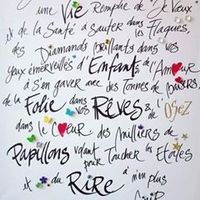 une Vie Remplie de Je Vœux
et de la Santé à Sauter dans les Flaques,
des Diamants brillants dans vos
yeux émerveillés d'Enfants de l'Amour
à s'en gaver avec des Tonnes de
de la Folie dans vos Rêves & de l'Osez
dans le Cœur des milliers de
Papillons volant pour Toucher les Etoiles
et du Rire à n'en plus